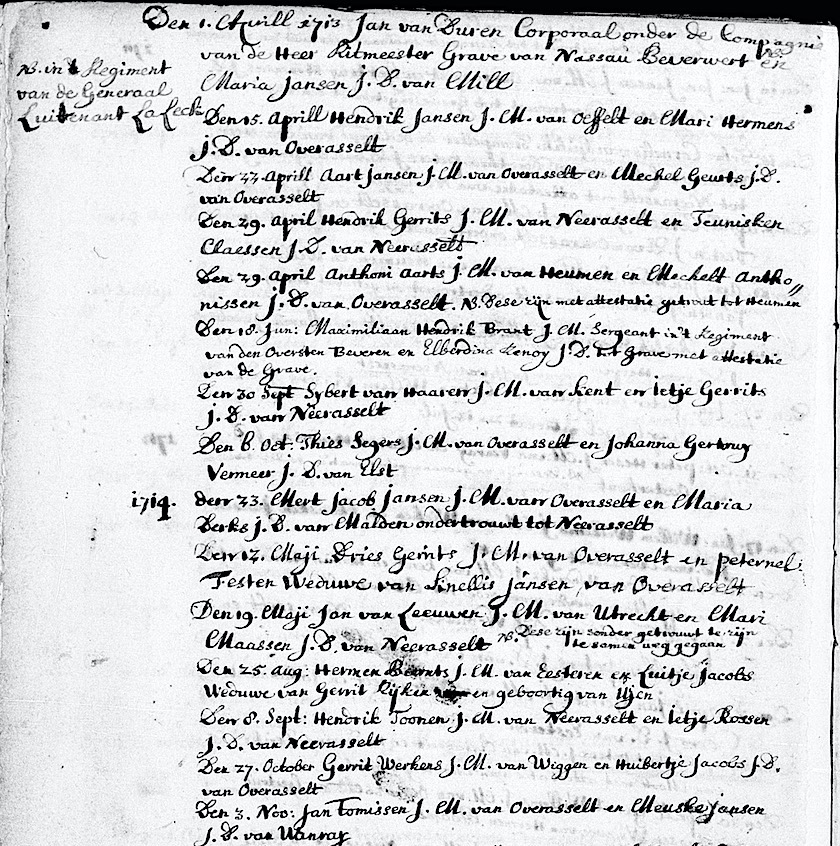 Den 1. Aprill 1713 Jan van Buren Corporaal onder de Compagnie
van de Heer Ritmeester Grave van Nassau Beverwert en
NB.
NB. in't Regiment
van de Generaal
Luitenant La Leck
Maria Jansen J. D. van Mill
Den 15. Aprill Hendrik Jansen J. M. van Oeffelt en Mari Hermens
J. D. van Overasselt
Den 22 Aprill Aart Jansen J. M. van Overasselt en Mechel Geurts J. D.
van Overasselt
Den 29. April Hendrik Gerrits J. M. van Neerasselt en Teunisken
Claessen J. D. van Neerasselt
Den 29. April Anthoni Aarts J. M. van Heumen en Mechelt Antho//
nissen J. D. van Overasselt. NB. Dese zijn met attestatie getrout tot Heumen
Den 18. Jun: Maximiliaan Hendrik Brant J. M. Sergeant in't Regiment
van den Oversten Beveren en Elberdina Kenoy J. D. tot Grave met attestatie
van de Grave.
Den 30 Sept Sybert van Haaren J. M. van Kent en Ietje Gerrits
J. D. van Neerasselt
Den 6. Oct: Thies Segers J. M. van Overasselt en Johanna Gertruy
Vermeer J. D. van Elst
1714. den 23. Mert Jacob Jansen J. M. van Overasselt en Maria
Derks J. D. van Malden ondertrouwt tot Neerasselt
Den 12. Maji Dries Gerrits J. M. van Overasselt en Peternel
Testen Weduwe van Knellis Jansen van Overasselt
Den 19. Maji Jan van Leeuwen J. M. van Utrecht en Mari
Maassen J. D. van Neerasselt NB. Dese zijn sonder getrouwt te zijn
te samen weg gegaan
Den 25. Aug: Hermen Beernts J. M. van Eesteren en Luitje Jacobs
Weduwe van Gerrit Rijken en geboortig van Ujen
Den 8. Sept: Hendrik Toonen J. M. van Neerasselt en Ietje Rossen
J. D. van Neerasselt
Den 27. October Gerrit Werkens J. M. van Wiggen en Huibertje Jacobs J. D.
van Overasselt
Den 3. Nov: Jan Tomissen J. M. van Overasselt en Meuske Jansen
J. D. van Wanray